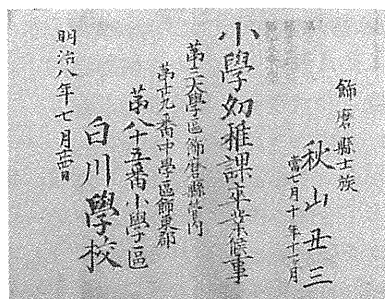 飾磨縣士族
秋山丑三
當七月十年十一ヶ月
小學幼稚課卒業候事
第三大學區飾磨縣管内
第十九番中學區飾東郡
第八十五番小學區
白川學校
明治八年七月